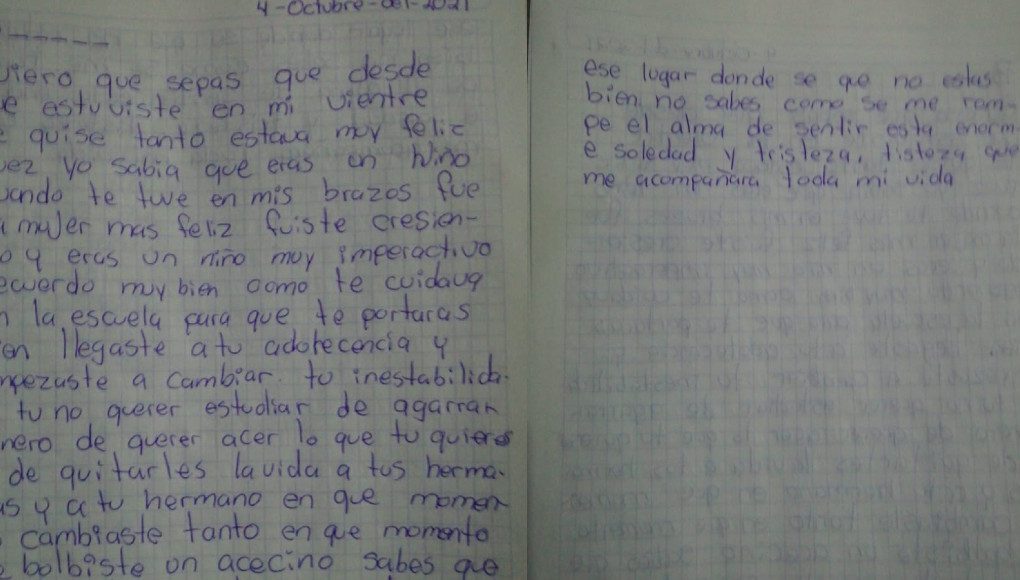 4-Octubre-del-2021
iero que sepas que desde
e estuviste en mi vientre
e quise tanto estava muy feliz
ez yo sabia que eras un Niño
ando te tuve en mis brazos fue
a mujer mas feliz fuiste cresien-
o y eras un niño muy imperactivo
ecuerdo muy bien como te cuidava
n la escuela para que te portaras
en llegaste a tu adolecencia y
mpezaste a cambiar. tu inestabilida-
tu no querer estudiar de agarrar
nero de querer acer lo que tu quieres
de quitarles la vida a tus herma-
as y a tu hermano en que momen
cambiaste tanto en que momento
e bolbiste un acecino sabes que
ese lugar donde se que no estas
bien no sabes como se me rom-
pe el alma de sentir esta enorm-
e soledad y tristeza, tisteza que
me acompañara toda mi vida